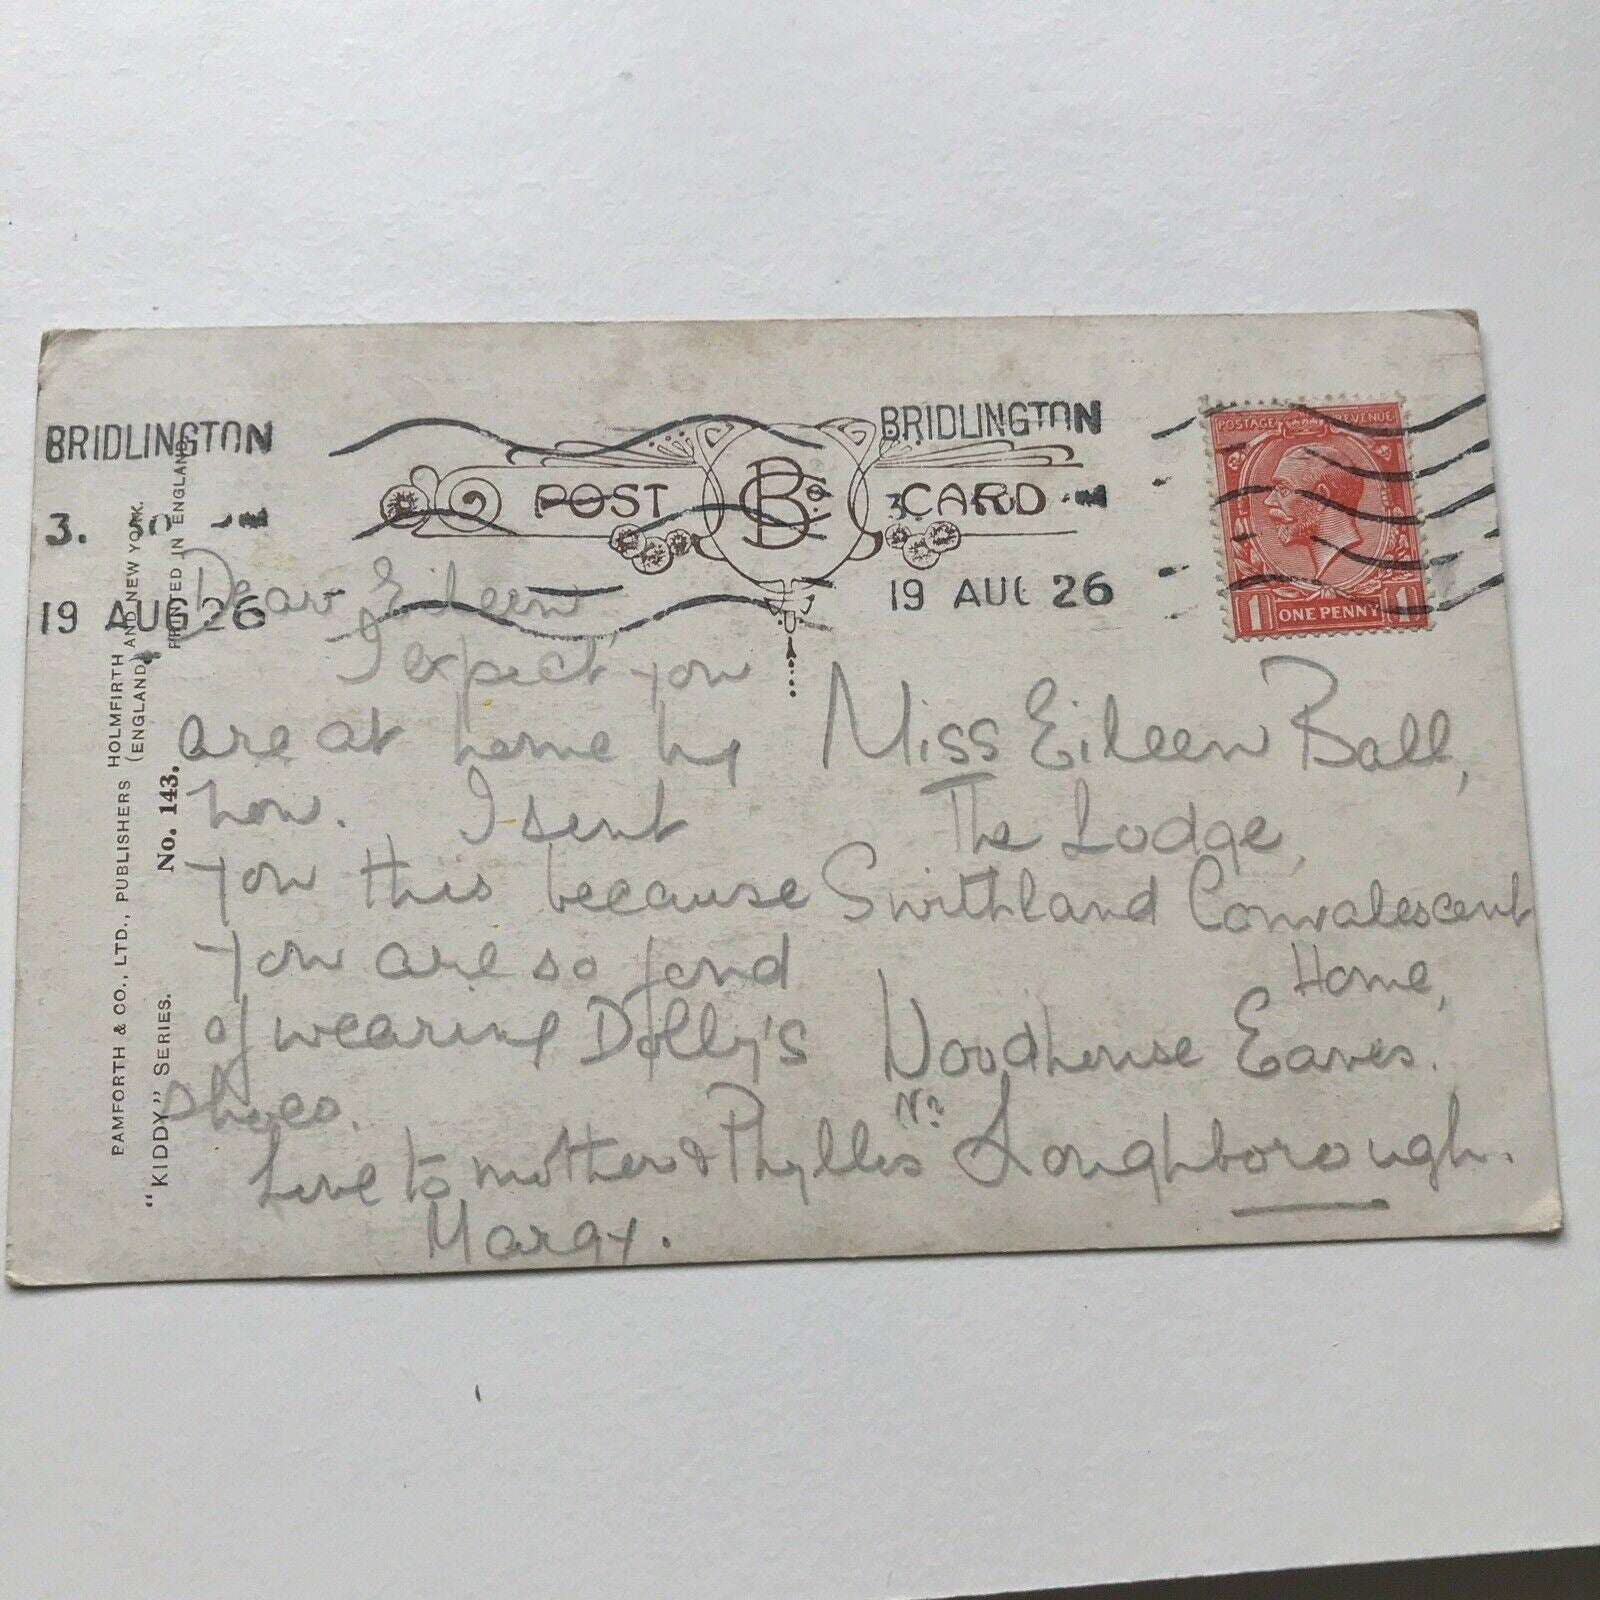 BRIDLINGTON
3.
19 AUG 26
POST Bº CARD
BRIDLINGTON
3.
19 AUG 26
POSTAGE REVENUE
1 ONE PENNY 1
BAMFORTH & CO., LTD., PUBLISHERS HOLMFIRTH (ENGLAND) AND NEW YORK.
"KIDDY" SERIES. No. 143. PRINTED IN ENGLAND
Dear Eileen,
I expect you
are at home by
now. I sent
you this because
you are so fond
of wearing Dolly's
shoes.
Love to mother & Phyllis
Margy.
Miss Eileen Ball,
The Lodge,
Swithland Convalescent
Home,
Woodhouse Eaves.
Nr
Loughborough.